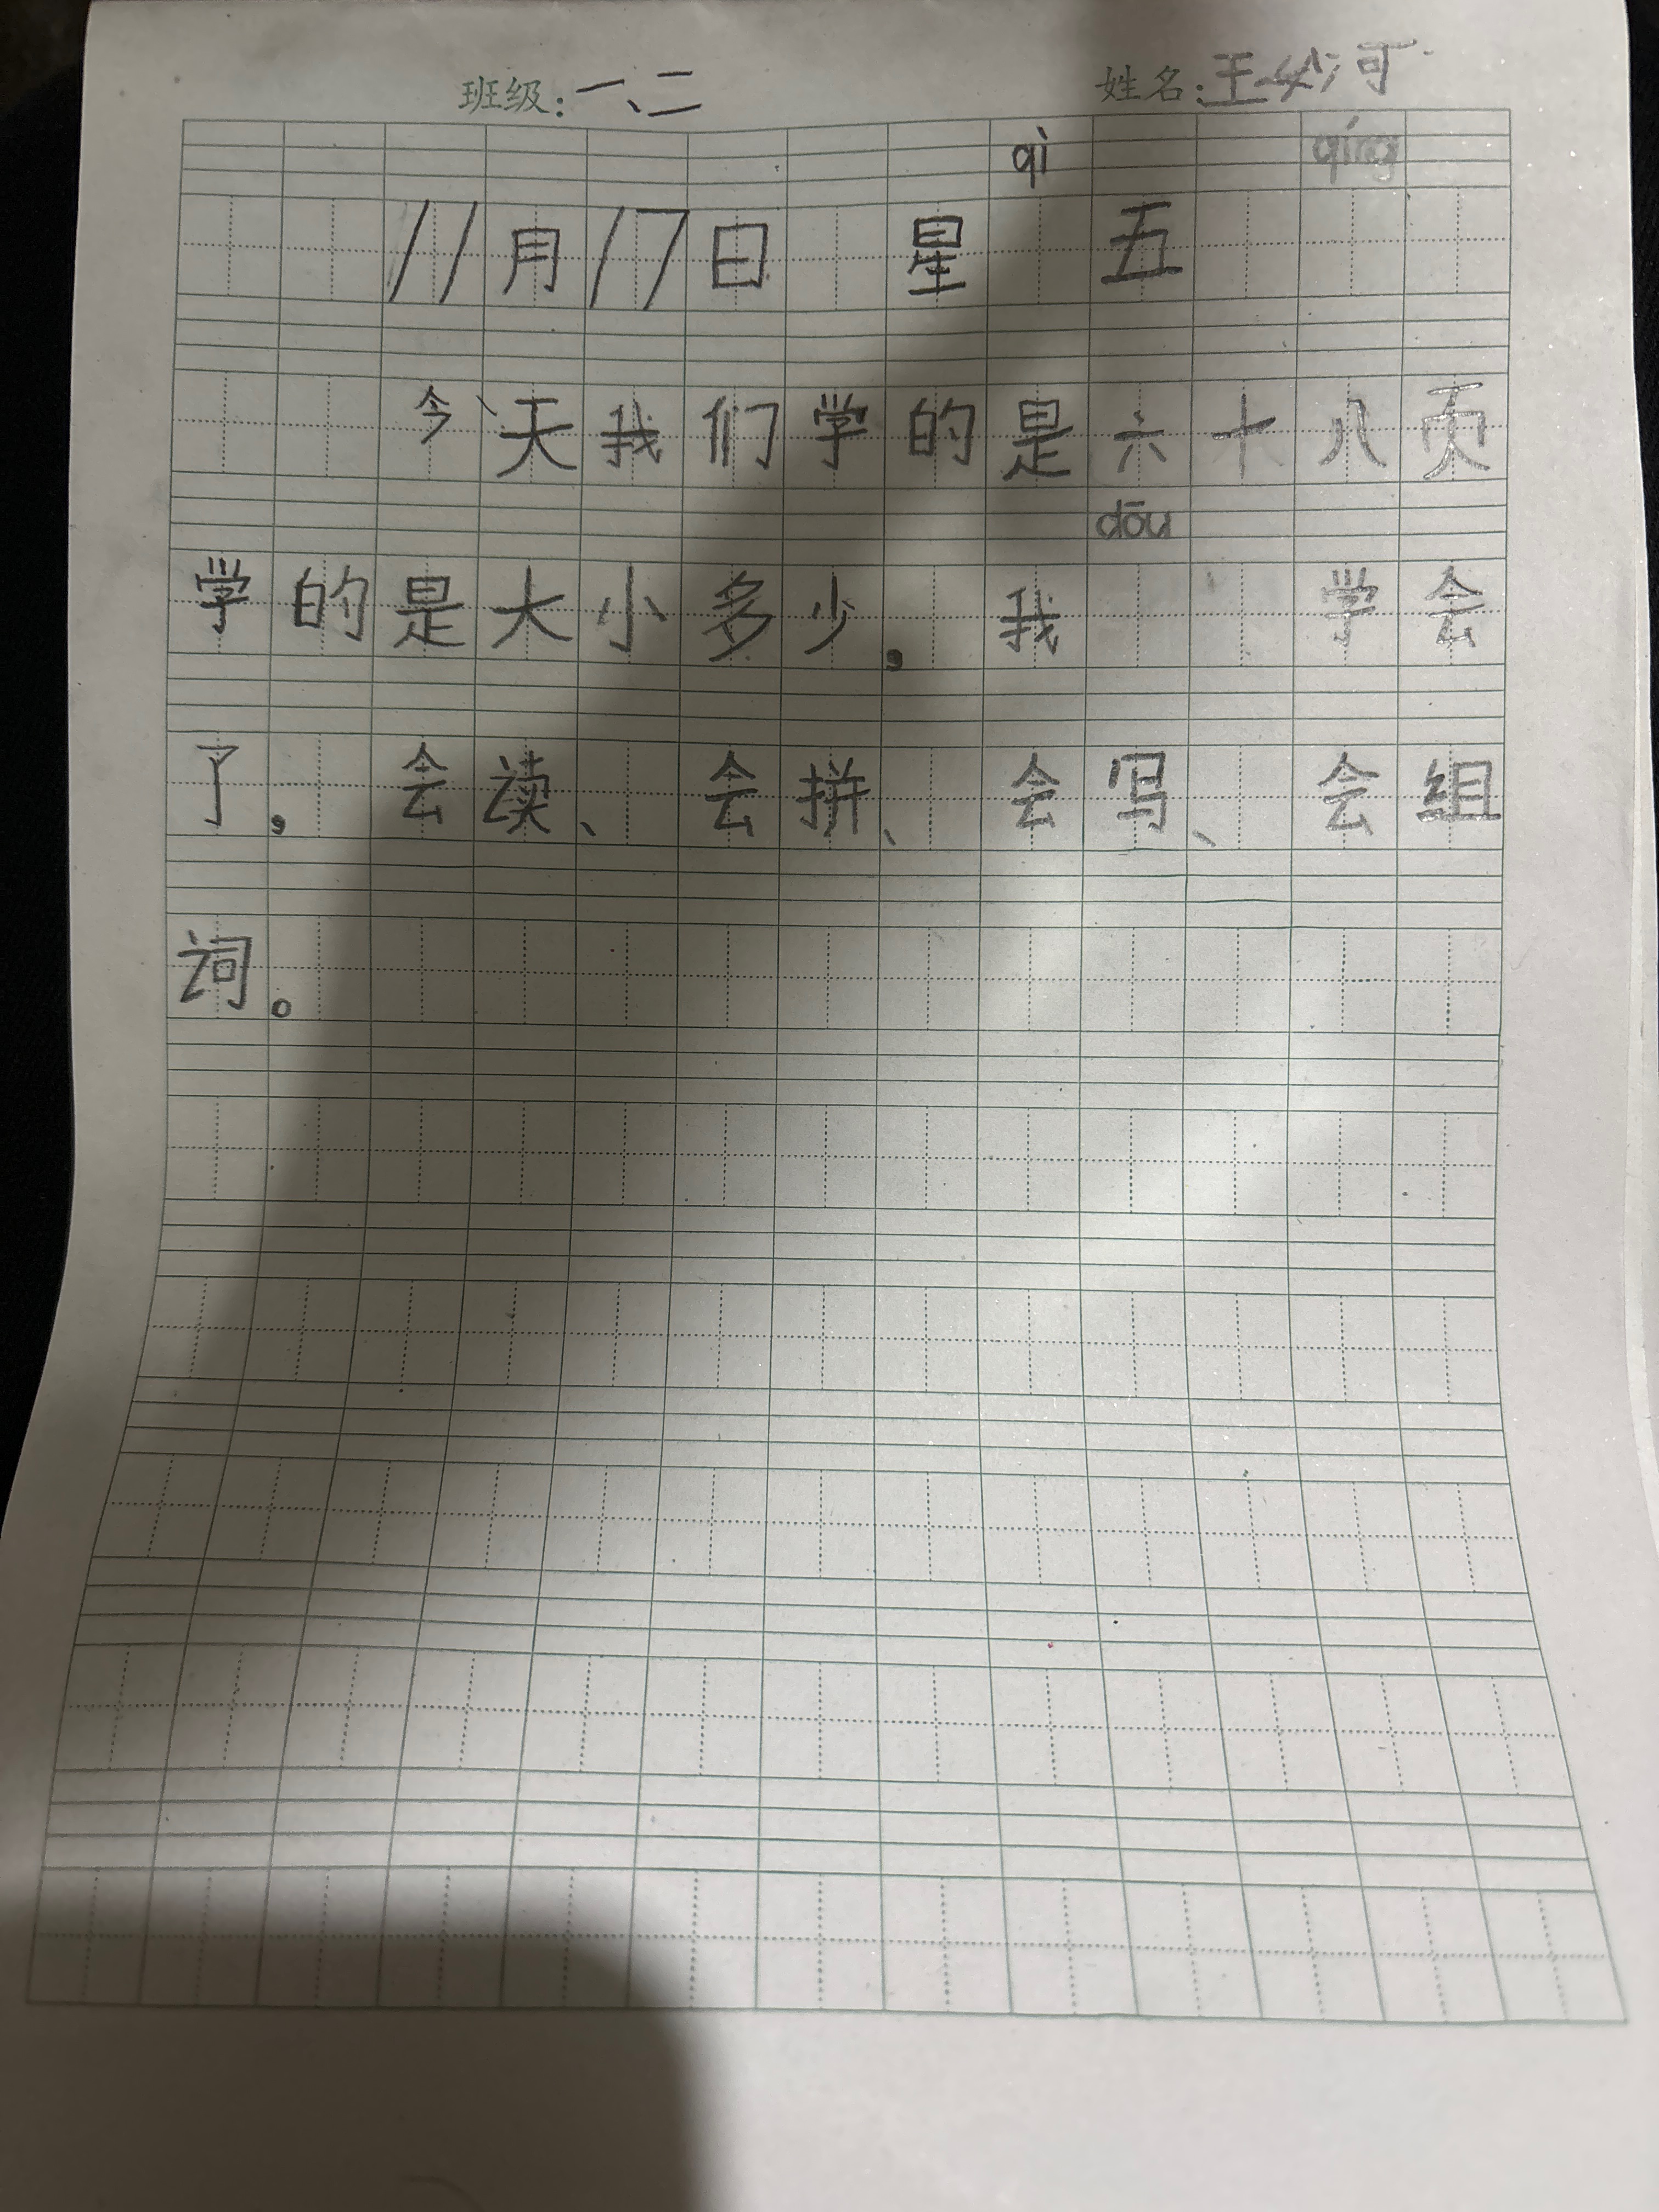 班级：一、二 姓名：王妙可
qì qíng
11月17日 星 五
今天我们学的是六十八页
dōu
学的是大小多少，我 学会
了，会读、会拼、会写、会组
词。